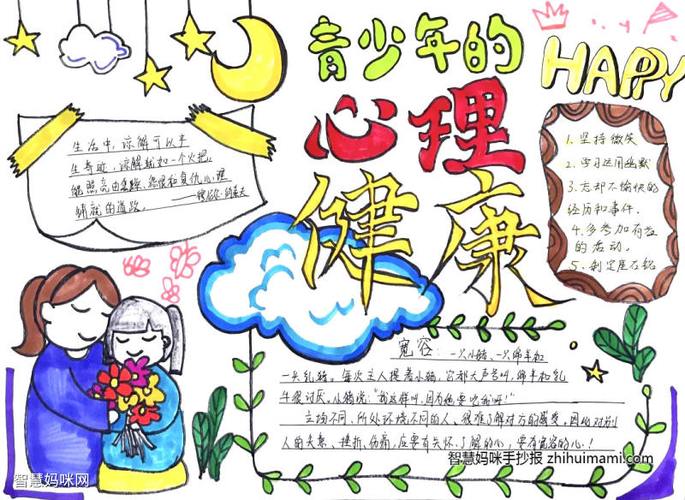 青少年的
心理
健康
HAPPY
生活中，谅解可以产
生奇迹，谅解就如一个火把，
能照亮由焦躁、怨恨和复仇心理
铺就的道路。
1. 坚持微笑
2. 学习运用幽默
3. 忘却不愉快的
经历和事件.
4. 多参加有益
的活动。
宽容：一只小猪、一只绵羊和
一头乳牛。每次主人捉着小猪，它都大声号叫，绵羊和乳
牛很讨厌。小猪说：
立场不同、所处环境不同的人，很难了解对方的感受，因此对别
人的失意、挫折、伤痛，应要有关怀、了解的心，要有宽容的心！
智慧妈咪手抄报 zhihuimami.com
智慧妈咪网